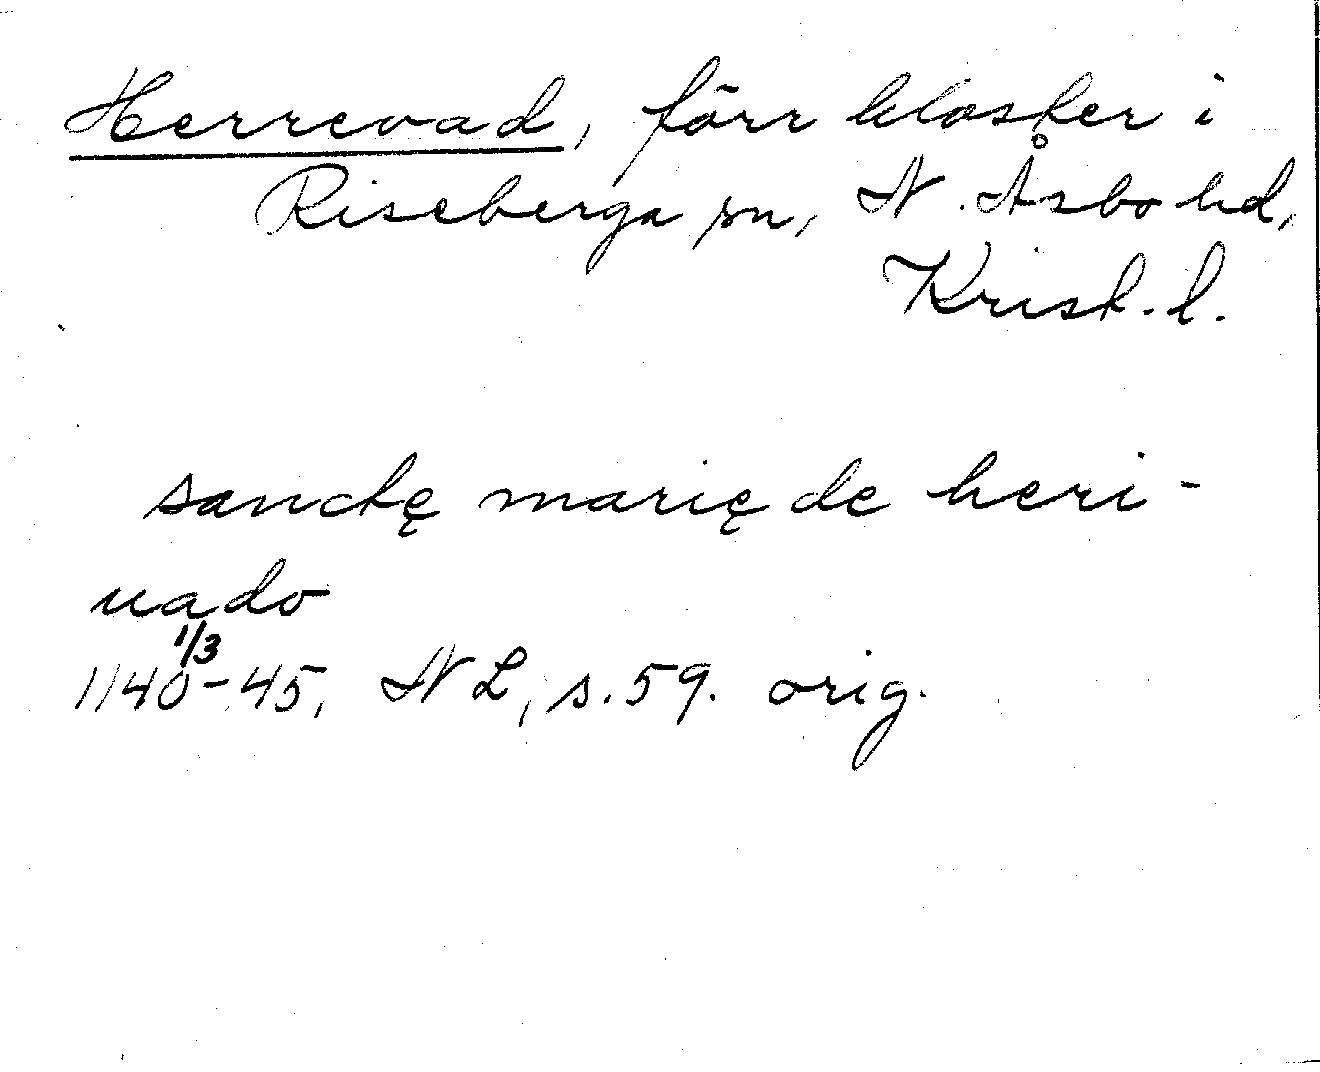 Herrevad, förr kloster i
Riseberga sn, N. Åsbo hd,
Krist. l.
sanctę marię de heri-
uado
1/3
1140-45, NL, s. 59. orig.